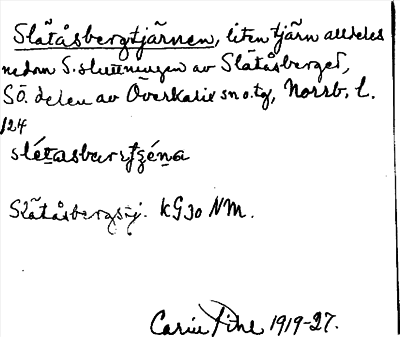 Slåtåsbergtjärnen, liten tjärn alldeles
nedom S. sluttningen av Slåtåsberget,
SÖ. delen av Överkalix sn o. tg, Norrb. l.
124
slétasbærtjéna
Slåtåsbergstj. KG30 NM.
Carin Pihl 1919-27.